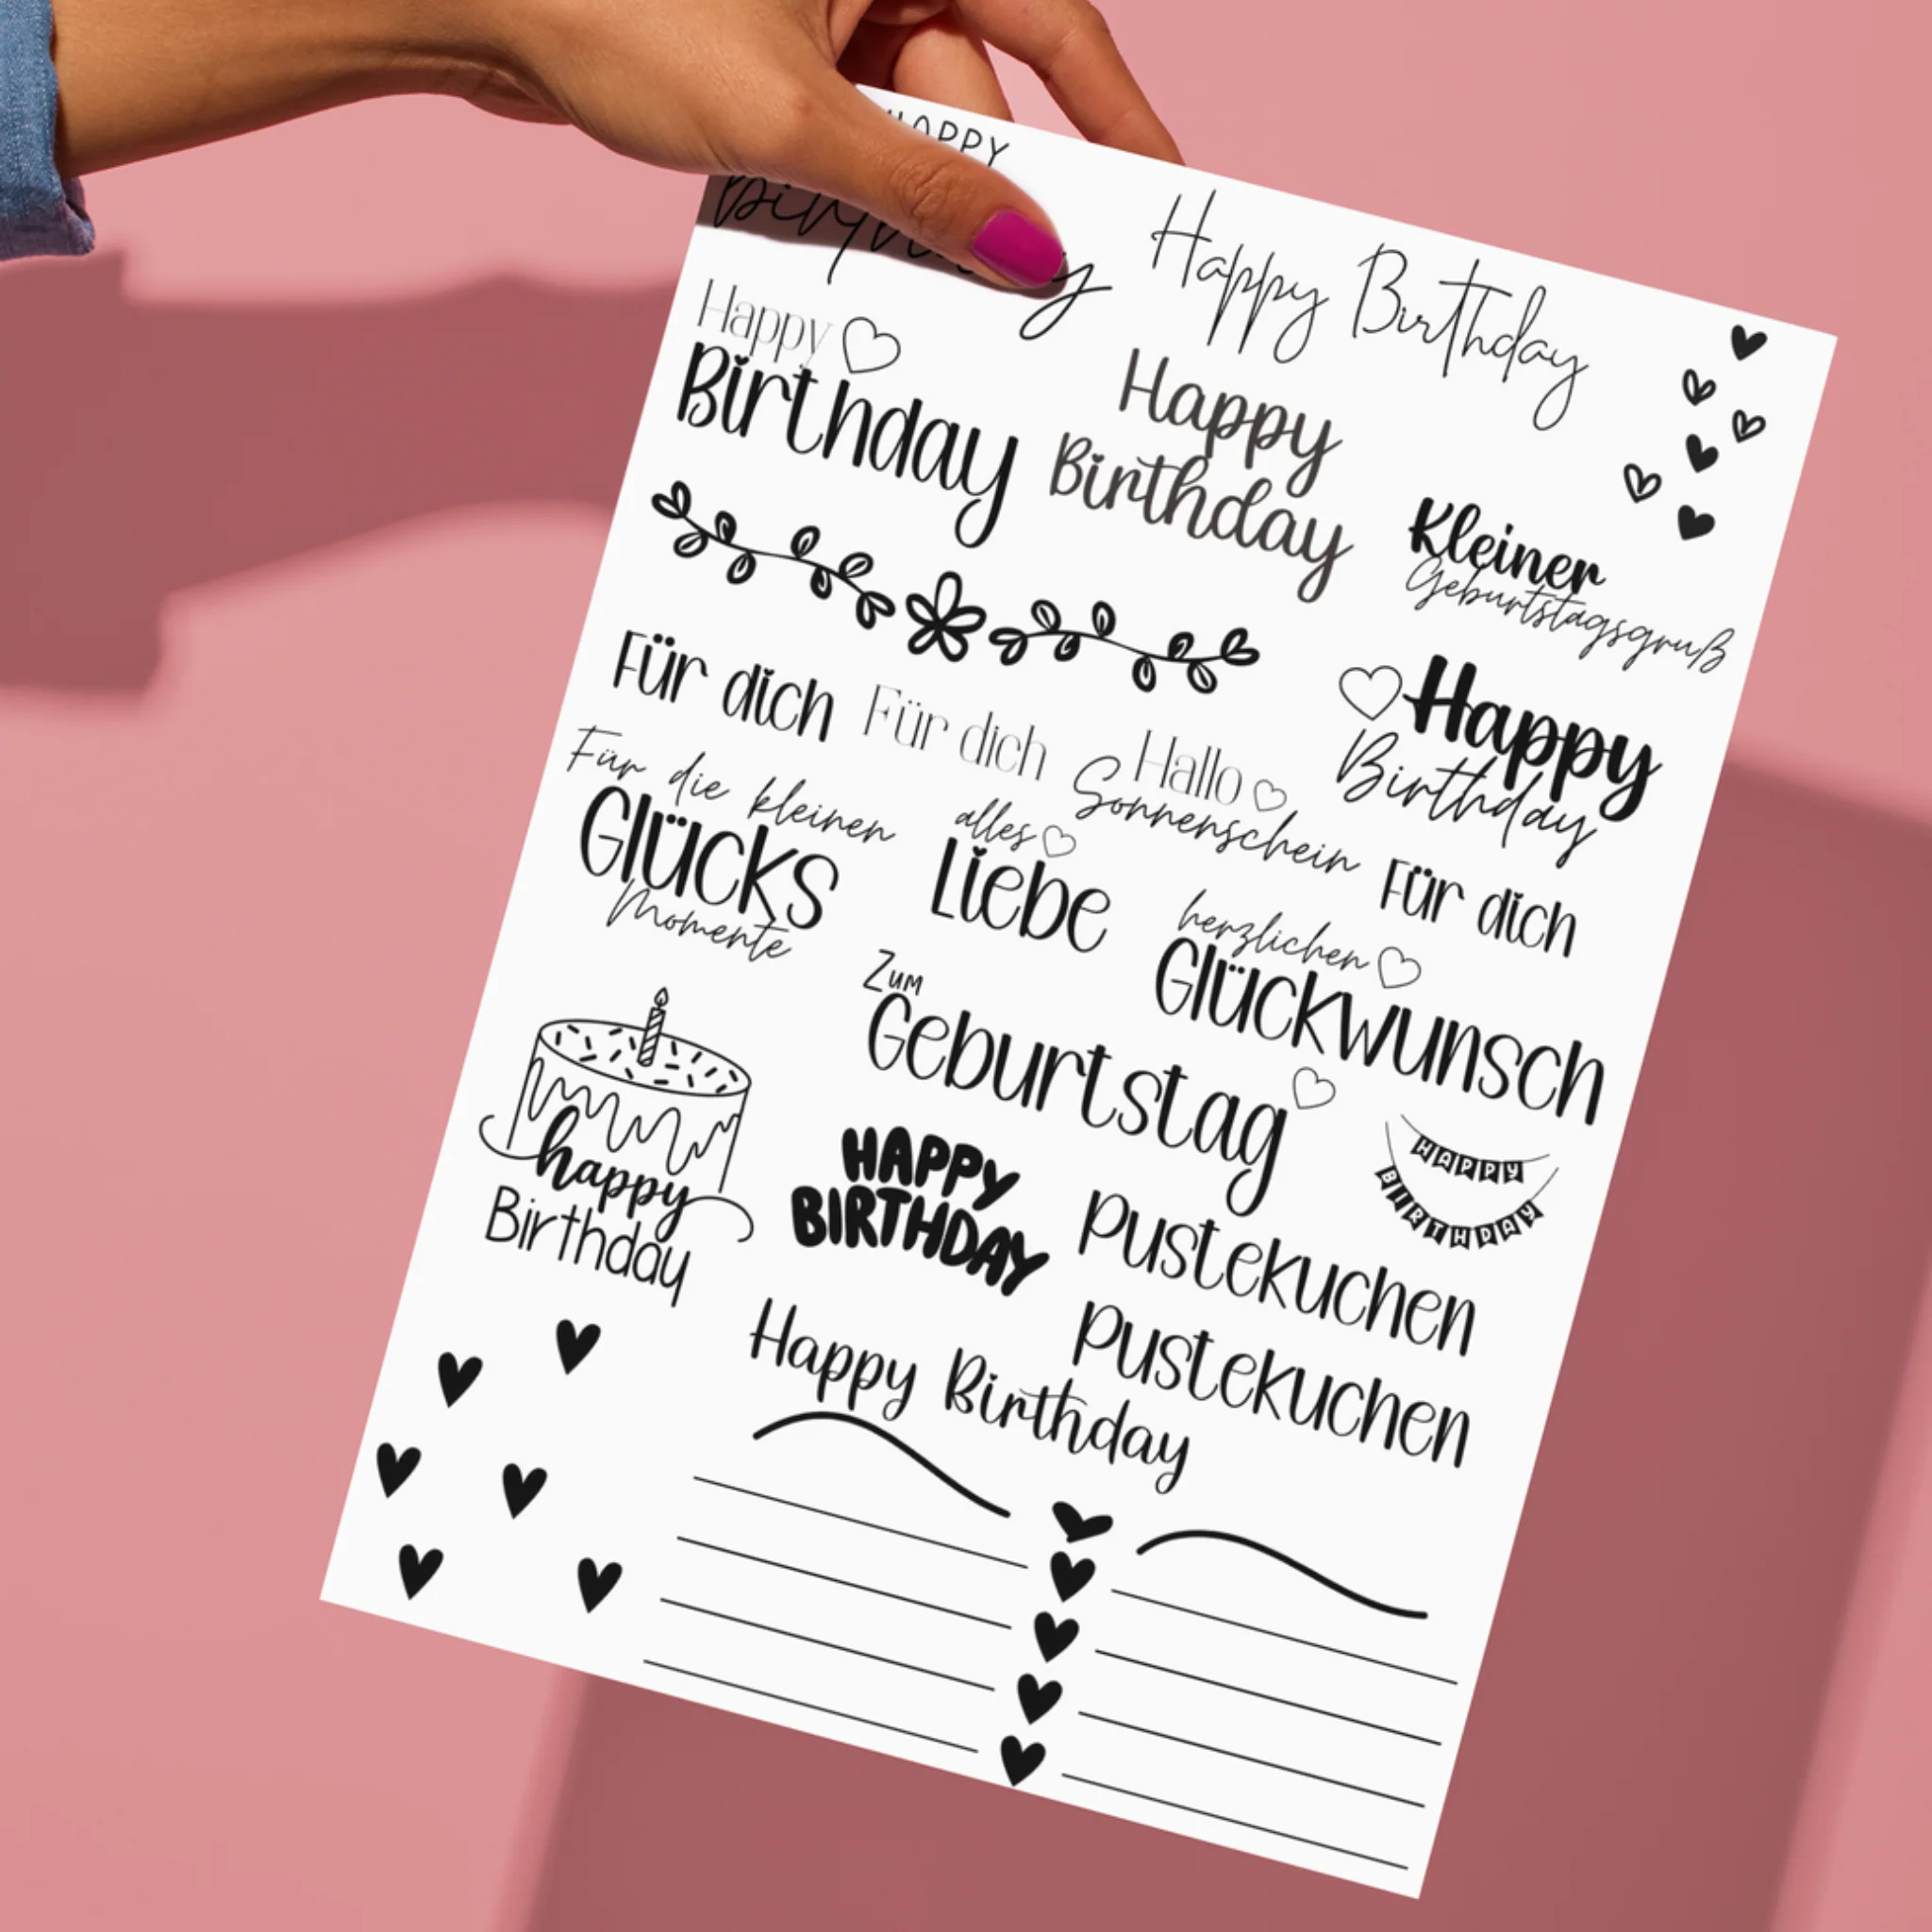 HAPPY
Birthday
Happy Birthday
Happy
Birthday
Happy
Birthday
Kleiner
Geburtstagsgruß
Für dich
Für dich
Hallo
Sonnenschein
Happy
Birthday
Für die kleinen
Glücks
Momente
alles
Liebe
Für dich
herzlichen
Glückwunsch
Zum
Geburtstag
happy
Birthday
HAPPY
BIRTHDAY
HAPPY
BIRTHDAY
Pustekuchen
Pustekuchen
Happy Birthday